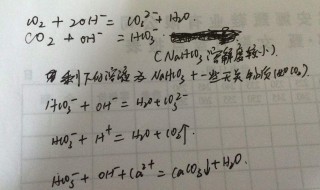 CO₂ + 2OH⁻ = CO₃²⁻ + H₂O.
CO₂ + OH⁻ = HCO₃⁻
(NaHCO₃ 溶解度较小)
剩下的溶液为 NaHCO₃ + 一些无关的 (如CO₂)
HCO₃⁻ + OH⁻ = H₂O + CO₃²⁻
HCO₃⁻ + H⁺ = H₂O + CO₂↑.
HCO₃⁻ + OH⁻ + Ca²⁺ = CaCO₃↓ + H₂O.